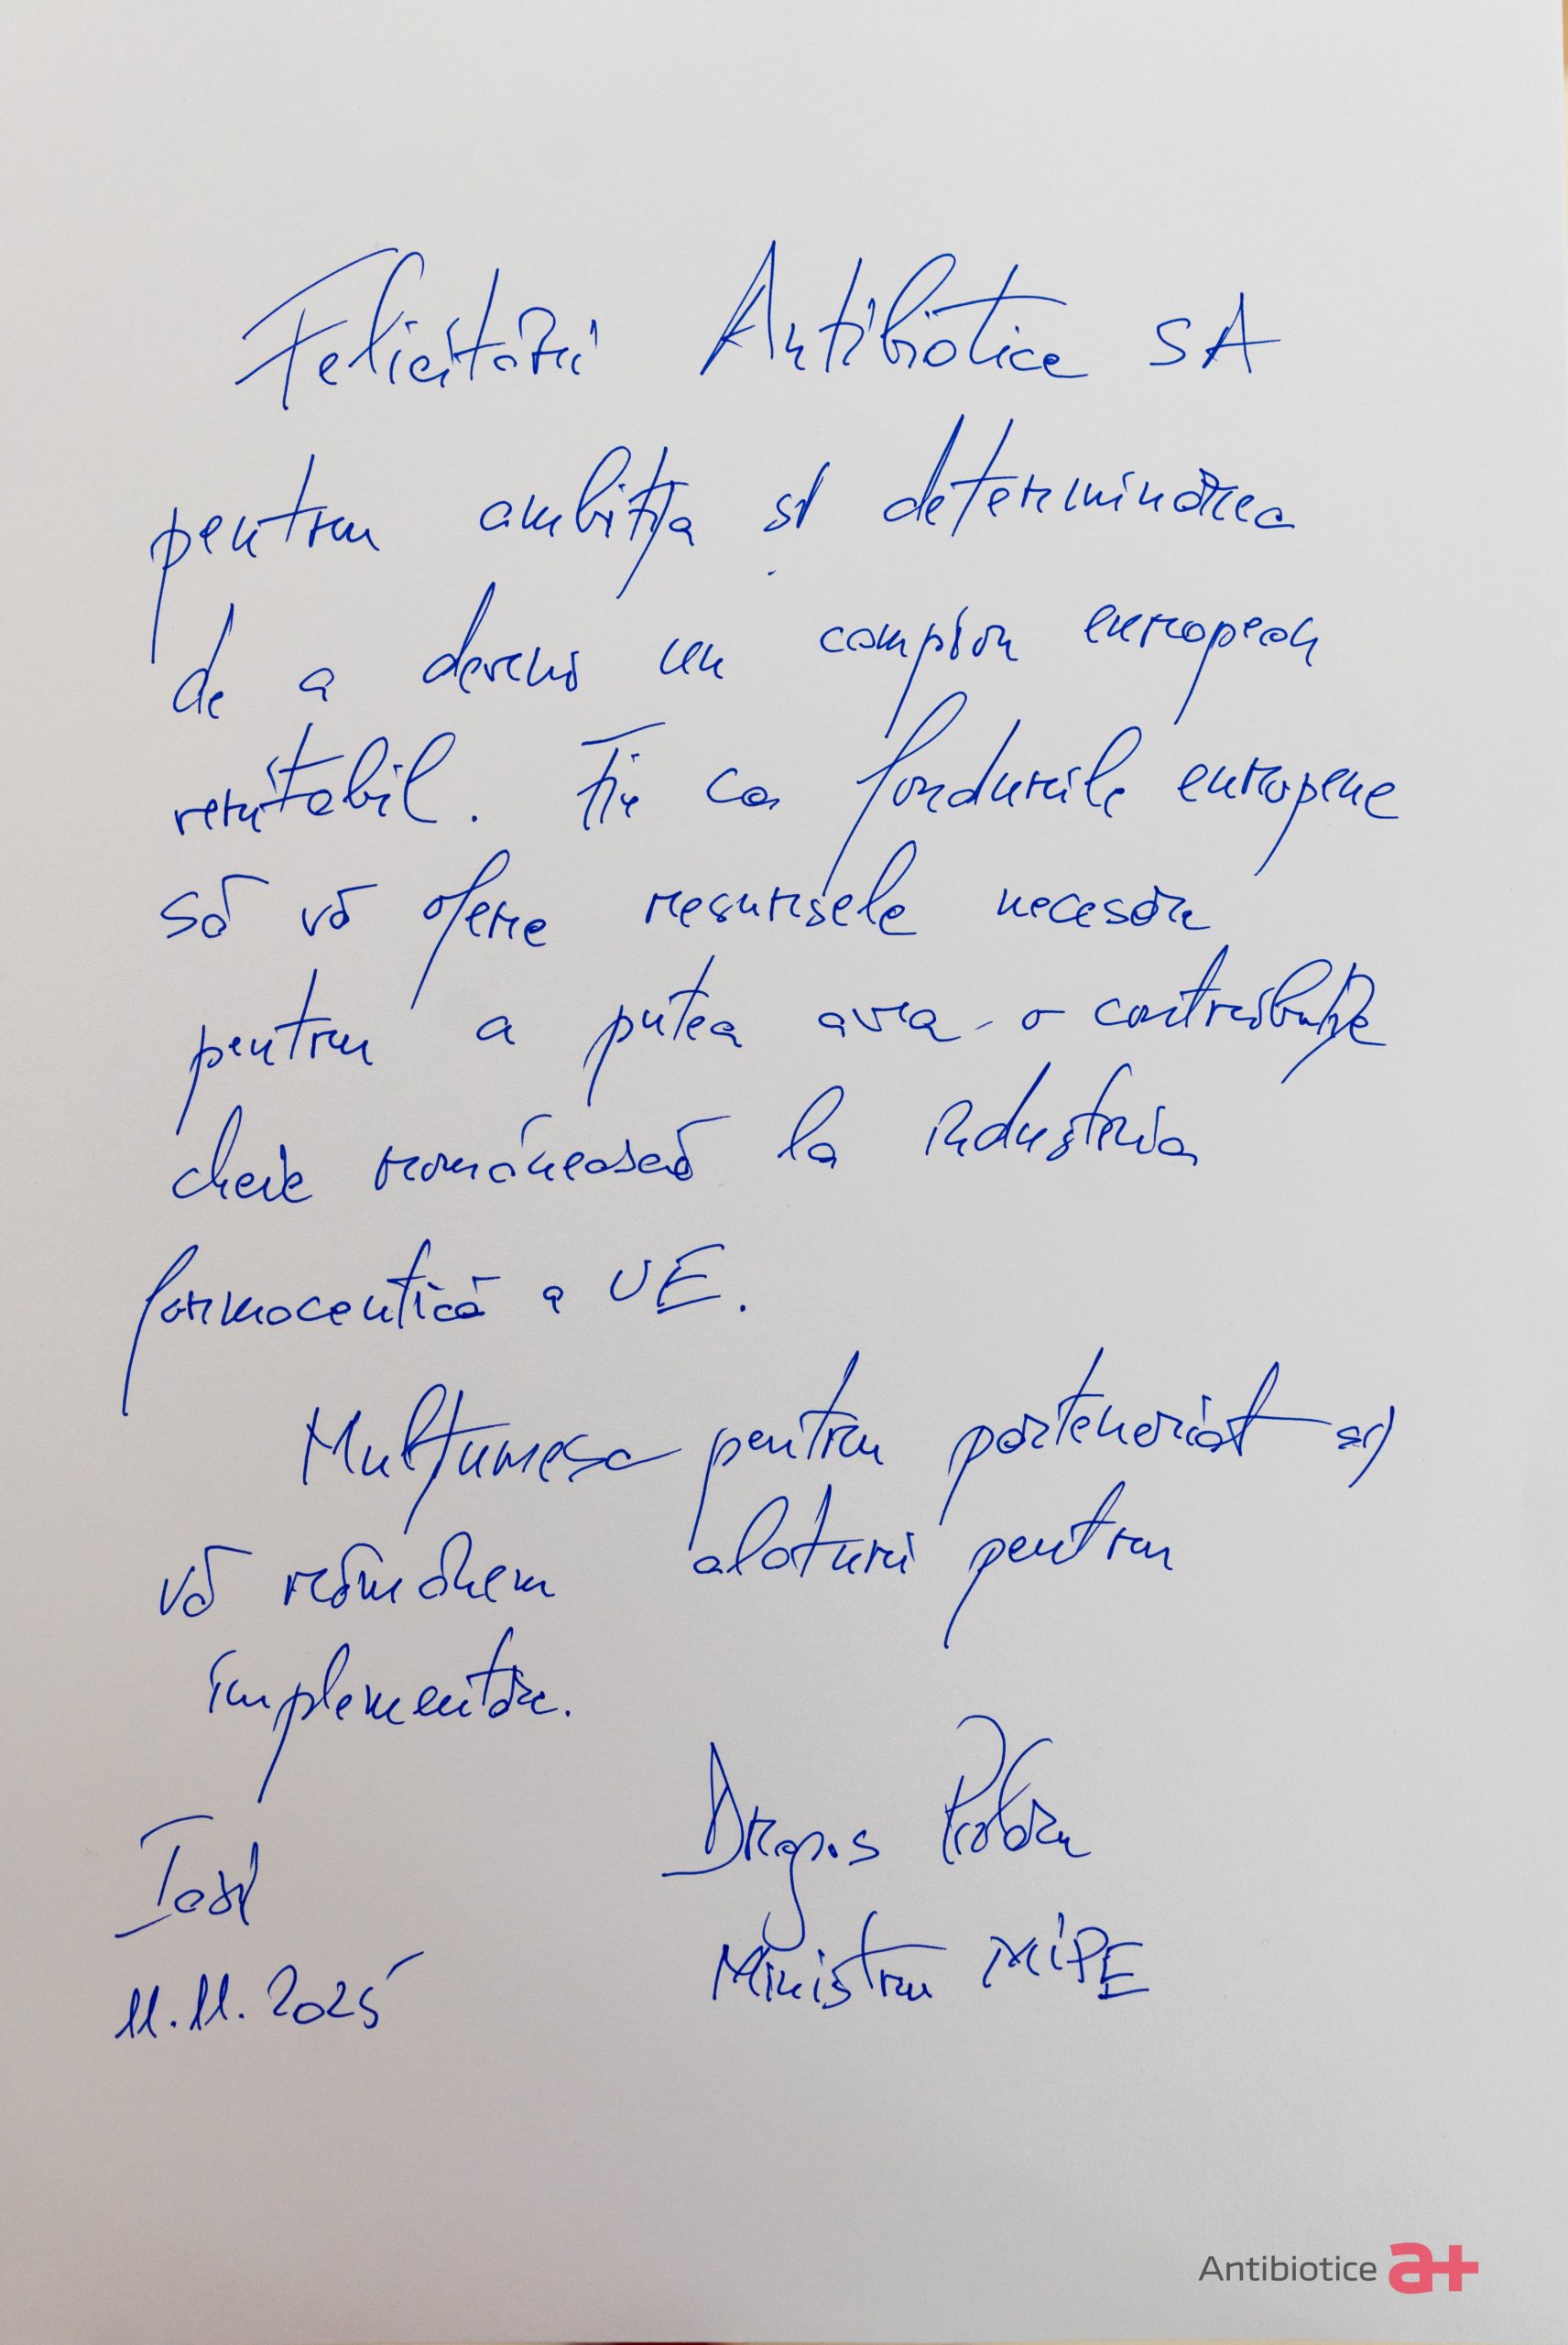 Felicitări Antibiotice SA
pentru ambiția și determinarea
de a deveni un campion european
veritabil. Fie ca fondurile europene
să vă ofere resursele necesare
pentru a putea avea o contribuție
cheie românească la industria
farmaceutică a UE.
Mulțumesc pentru parteneriat și
vă rămânem alături pentru
implementare.
Dragoș Pîslaru
Iași
Ministru MIPE
11.11.2025
Antibiotice a+